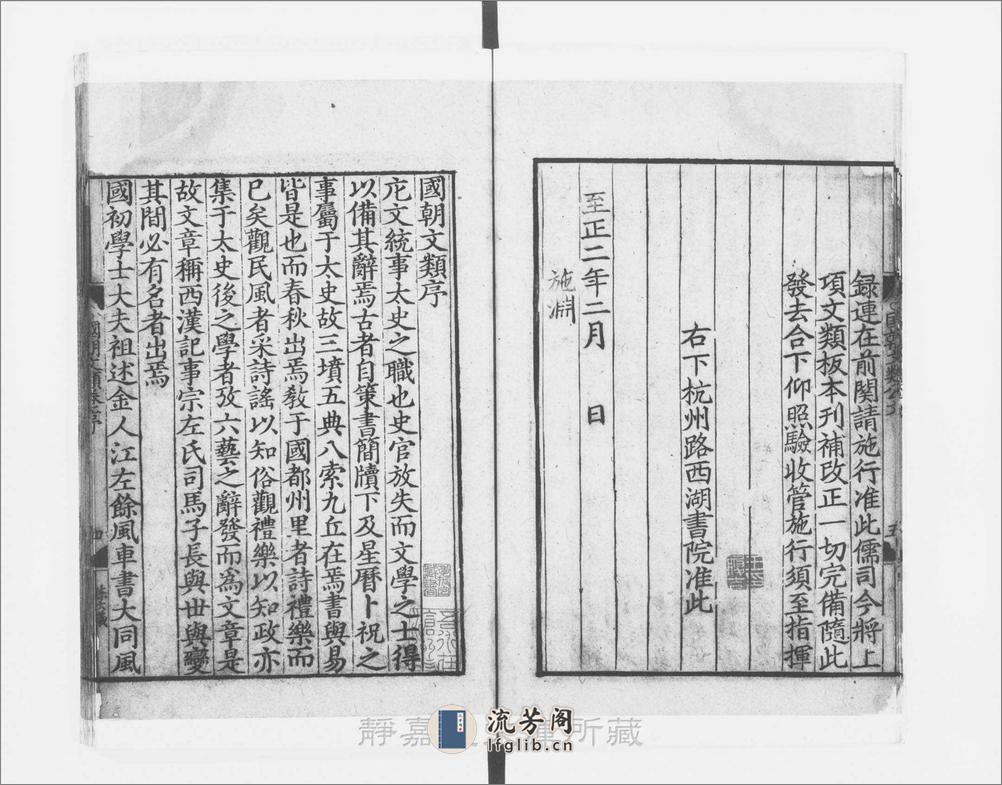 録連在前関請施行准此儒司今將上
項文類板本刊補改正一切完備隨此
發去合下仰照驗收管施行須至指揮
右下杭州路西湖書院准此
至正二年二月　日
施淵
國朝文類序
庀文統事太史之職也史官放失而文學之士得
以備其辭焉古者自策書簡牘下及星曆卜祝之
事屬于太史故三墳五典八索九丘在焉書與易
皆是也而春秋出焉敎于國都州里者詩禮樂而
已矣觀民風者采詩謠以知俗觀禮樂以知政亦
集于太史後之學者攷六藝之辭發而爲文章是
故文章稱西漢記事宗左氏司馬子長與世與變
其間必有名者出焉
國初學士大夫祖述金人江左餘風車書大同風
靜嘉 所藏
流芳阁
lfglib.cn